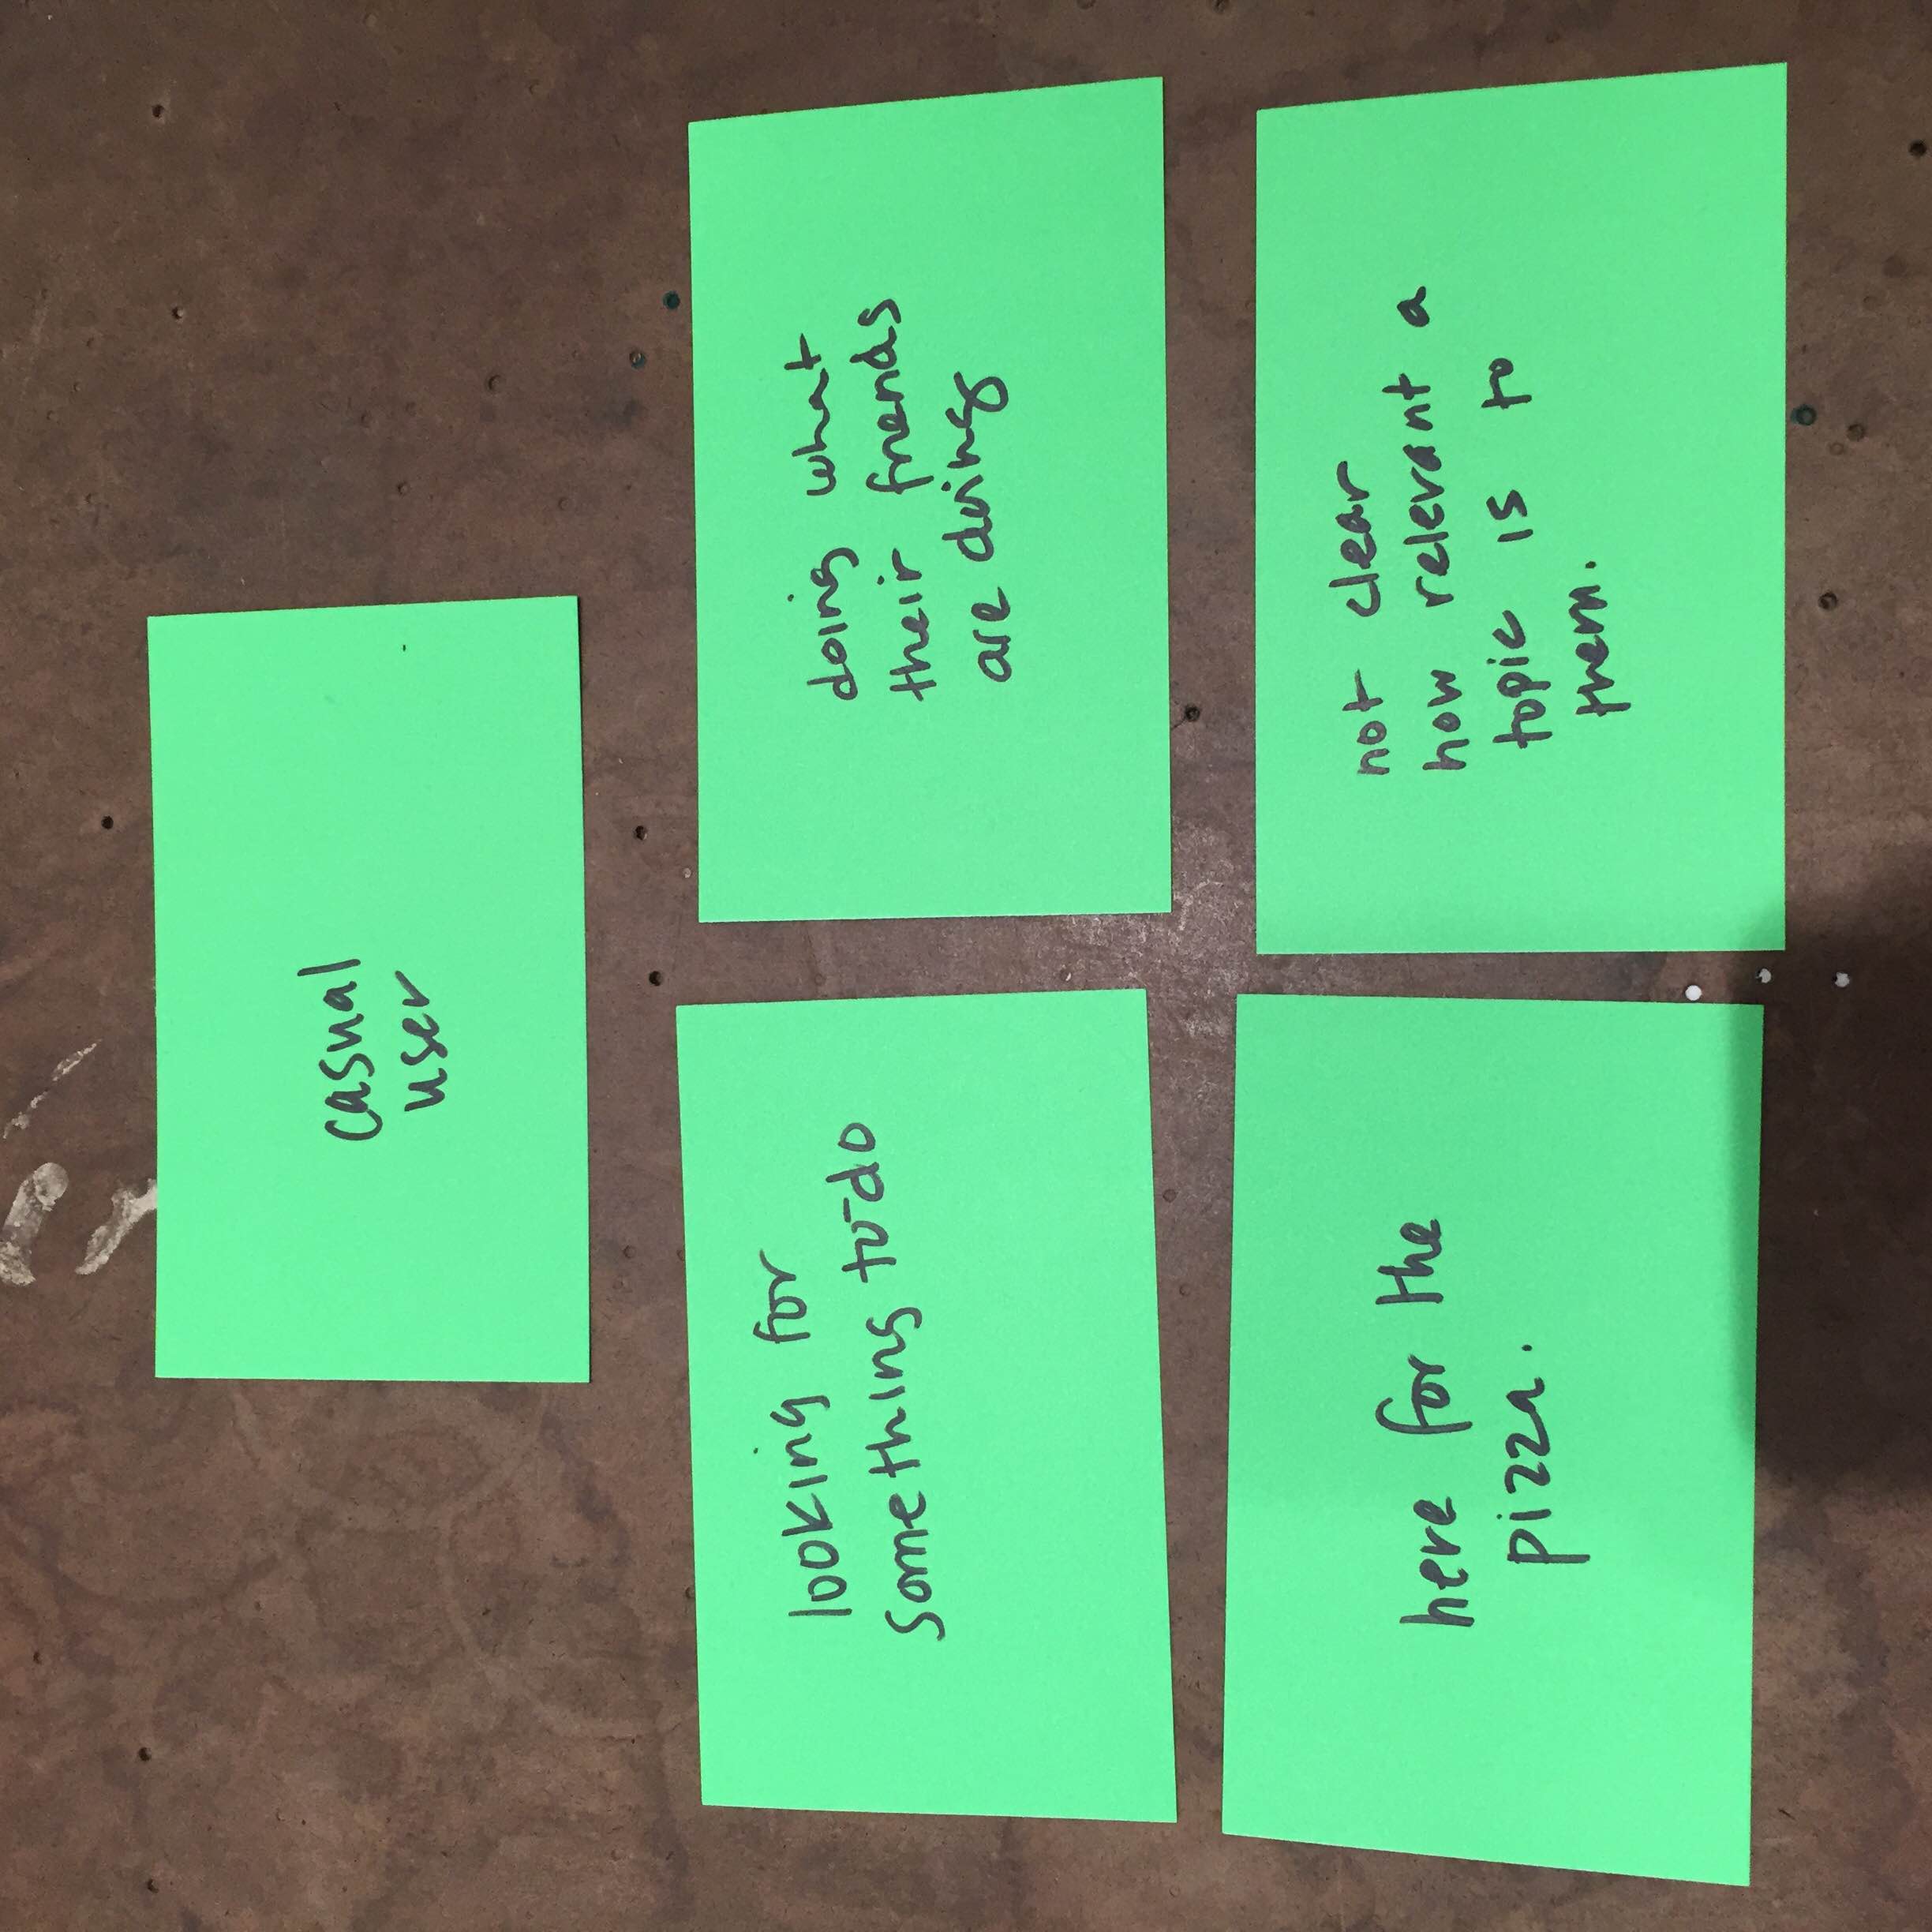 casual
user
looking for
something to do
doing what
their friends
are doing
here for the
pizza.
not clear
how relevant a
topic is to
them.